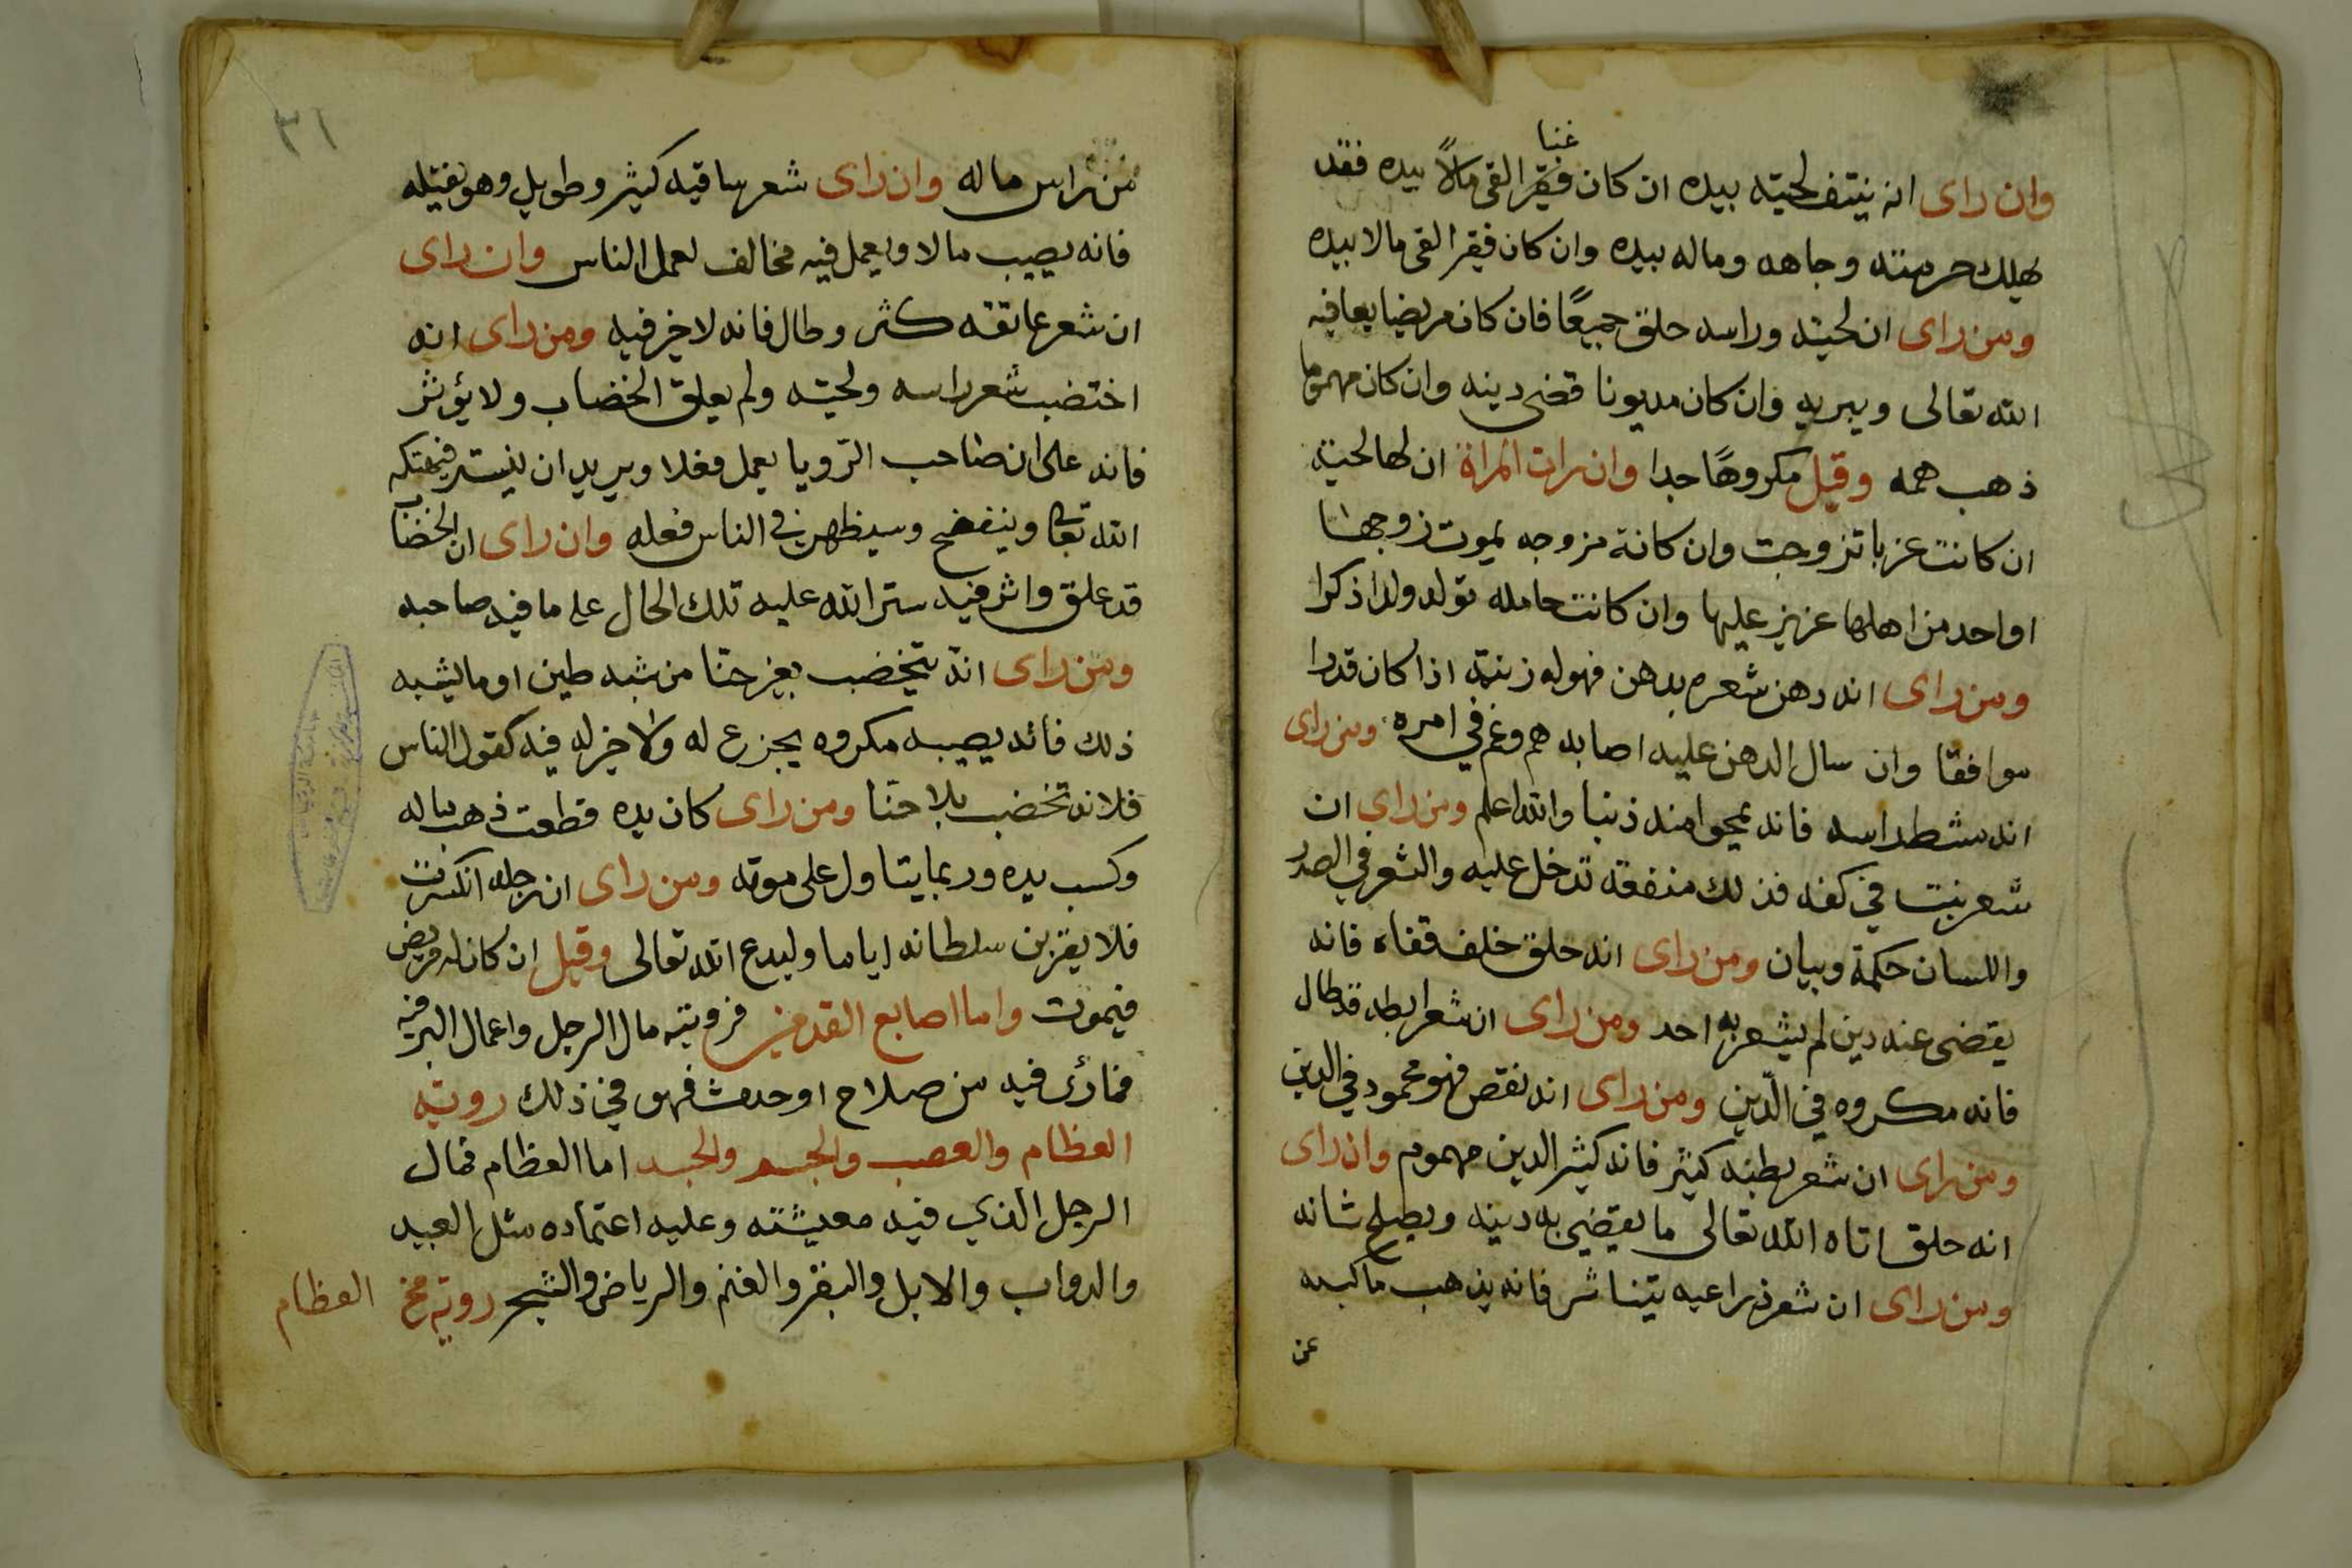 غنيا
وان راى انه ينتف لحيته بيده ان كان فقيرا لقى مالاً بيده فقد
يهلك حرمته وجاهه وماله بيده وان كان فقيرا لقى مالا بيده
ومن راى ان لحيته وراسه حلق جميعًا فان كان مريضا يعافيه
الله تعالى ويبريه وان كان مديونا قضى دينه وان كان مهموما
ذهب همه وقيل مكروهًا جدا وان رات المراة ان لها لحية
ان كانت عزبا تزوجت وان كانة مزوجه يموت زوجها
او احد من اهلها عزيز عليها وان كانت حامله تولد ولدا ذكرا
ومن راى انه دهن شعره بدهن فهو له زينة اذا كان قدرا
موافقا وان سال الدهن عليه اصابه هم وغم في امره ومن راى
انه مشط راسه فانه يمحوا منه ذنبا والله اعلم ومن راى ان
شعر نبت في كفه فذلك منفعة تدخل عليه والشعر في الصدر
واللسان حكمة وبيان ومن راى انه حلق خلف قفاه فانه
يقضى عنه دين لم يشعر به احد ومن راى ان شعر ابطه قد طال
فانه مكروه في الدّين ومن راى انه نقص فهو محمود في الدين
ومن راى ان شعر بطنه كثير فانه كثير الدين مهموم وان راى
انه حلق اتاه الله تعالى ما يقضي به دينه ويصلح شانه
ومن راى ان شعر ذراعيه يتناثر فانه يذهب ما كسبه
عن
٣١
من راس ماله وان راى شعر ساقيه كثير وطويل وهو يفتله
فانه يصيب مالا ويعمل فيه مخالف لعمل الناس وان راى
ان شعر عانقه كثر وطال فانه لا خير فيه ومن راى انه
اختضب شعر راسه ولحيته ولم يعلق الخضاب ولا يؤثر
فانه على ان صاحب الرّويا يعمل فعلا ويريد ان يستر فيهتكه
الله تعا وينفضح وسيظهر في الناس فعله وان راى ان الخضاب
قد علق واثر فيه ستر الله عليه تلك الحال على ما فيه صاحبه
ومن راى انه يتخضب بغير حنا من شبه طين او ما يشبه
ذلك فانه يصيبه مكروه يجزع له ولا خير له فيه كقول الناس
فلانه تخضب بلا حنّا ومن راى كان يده قطعت ذهب ماله
وكسب يده وربما يتاول على موته ومن راى ان رجله انكسرت
فلا يقربن سلطانه اياما وليدع الله تعالى وقيل ان كان له مريض
فيموت واما اصابع القدمين فرويته مال الرجل واعمال البر فيه
فما راى فيه من صلاح او حدث فهو في ذلك رويته
العظام والعصب والجسم والجسد اما العظام فمال
الرجل الذي فيه معيشته وعليه اعتماده مثل العبيد
والدواب والابل والبقر والغنم والرياض والشجر رويه مخ
العظام